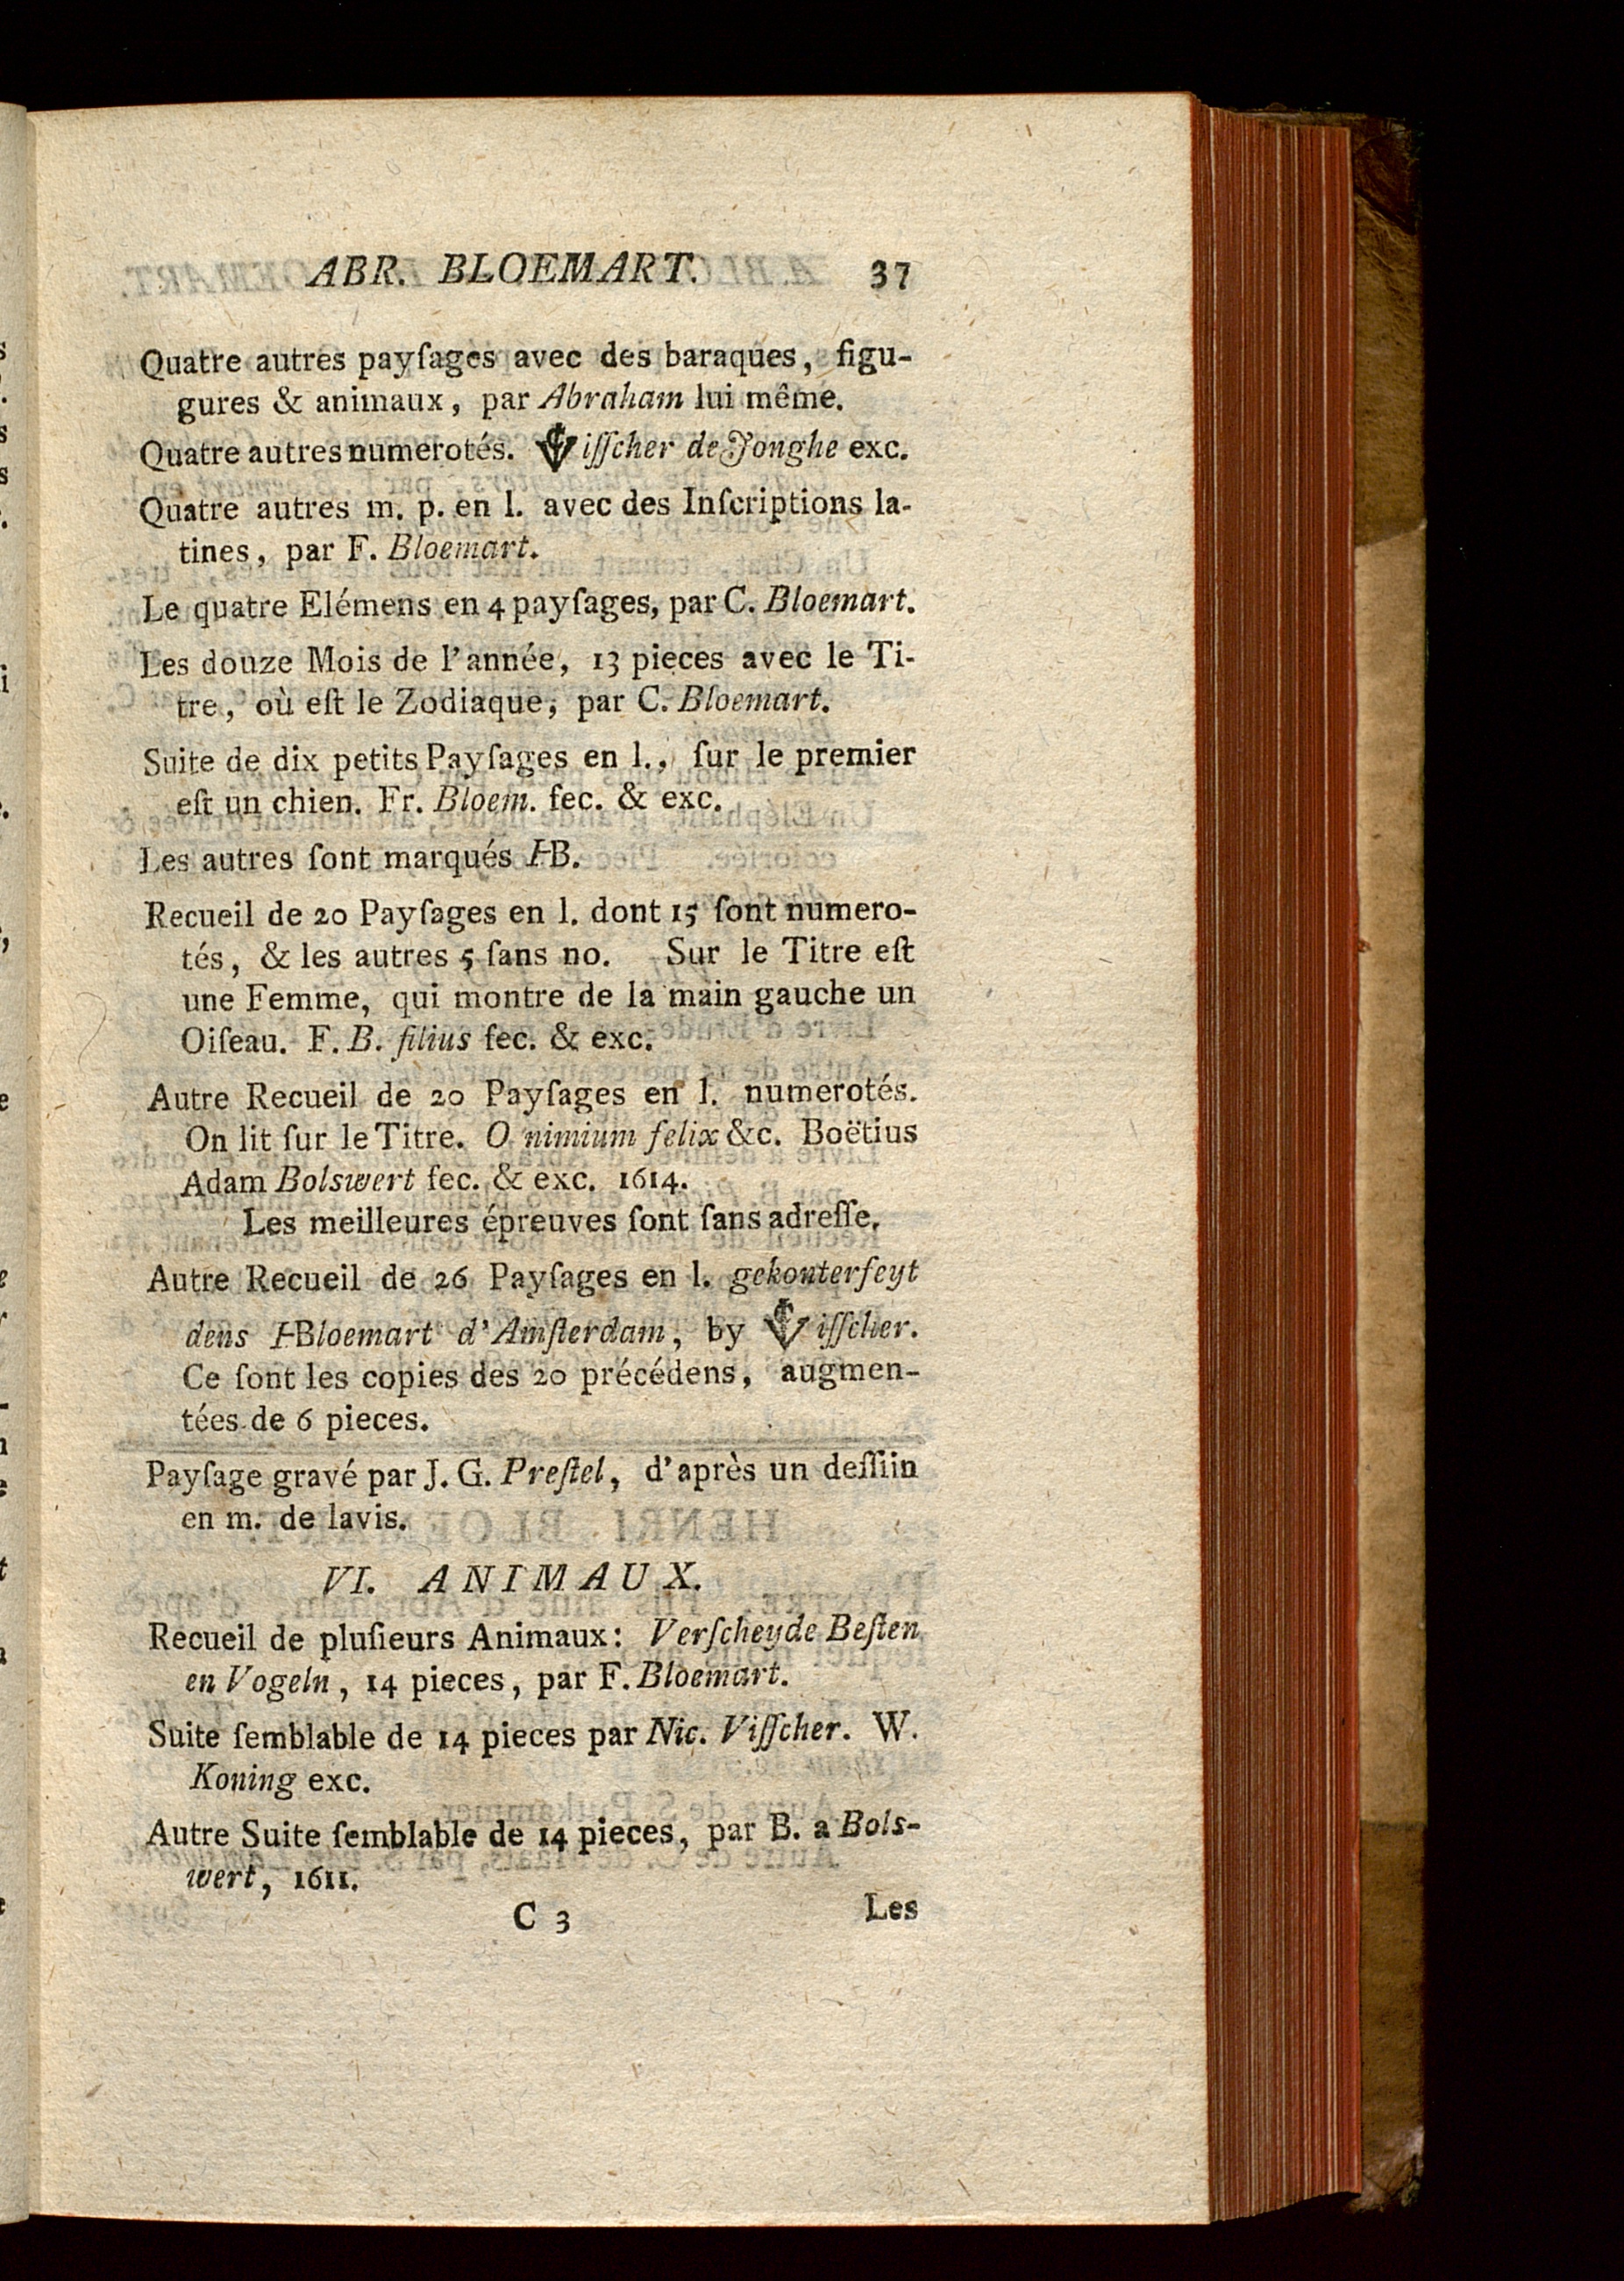 ABR. BLOEMART. 37
Quatre autres payſages avec des baraques, figu-
gures & animaux, par Abraham lui même.
Quatre autres numerotés. Viſſcher de Jonghe exc.
Quatre autres m. p. en l. avec des Inſcriptions la-
tines, par F. Bloemart.
Le quatre Elémens en 4 payſages, par C. Bloemart.
Les douze Mois de l'année, 13 pieces avec le Ti-
tre, où eſt le Zodiaque, par C. Bloemart.
Suite de dix petits Payſages en l., ſur le premier
eſt un chien. Fr. Bloem. fec. & exc.
Les autres ſont marqués HB.
Recueil de 20 Payſages en l. dont 15 ſont numero-
tés, & les autres 5 ſans no. Sur le Titre eſt
une Femme, qui montre de la main gauche un
Oiſeau. F. B. filius fec. & exc.
Autre Recueil de 20 Payſages en l. numerotés.
On lit ſur le Titre. O nimium felix &c. Boëtius
Adam Bolswert fec. & exc. 1614.
Les meilleures épreuves ſont ſans adreſſe.
Autre Recueil de 26 Payſages en l. gekonterfeyt
dens HBloemart d'Amſterdam, by Viſſcher.
Ce ſont les copies des 20 précédens, augmen-
tées de 6 pieces.
Payſage gravé par J. G. Preſtel, d'après un deſſiin
en m. de lavis.
VI. ANIMAUX.
Recueil de pluſieurs Animaux: Verſcheyde Beſten
en Vogeln, 14 pieces, par F. Bloemart.
Suite ſemblable de 14 pieces par Nic. Viſſcher. W.
Koning exc.
Autre Suite ſemblable de 14 pieces, par B. a Bols-
wert, 1611.
C 3 Les